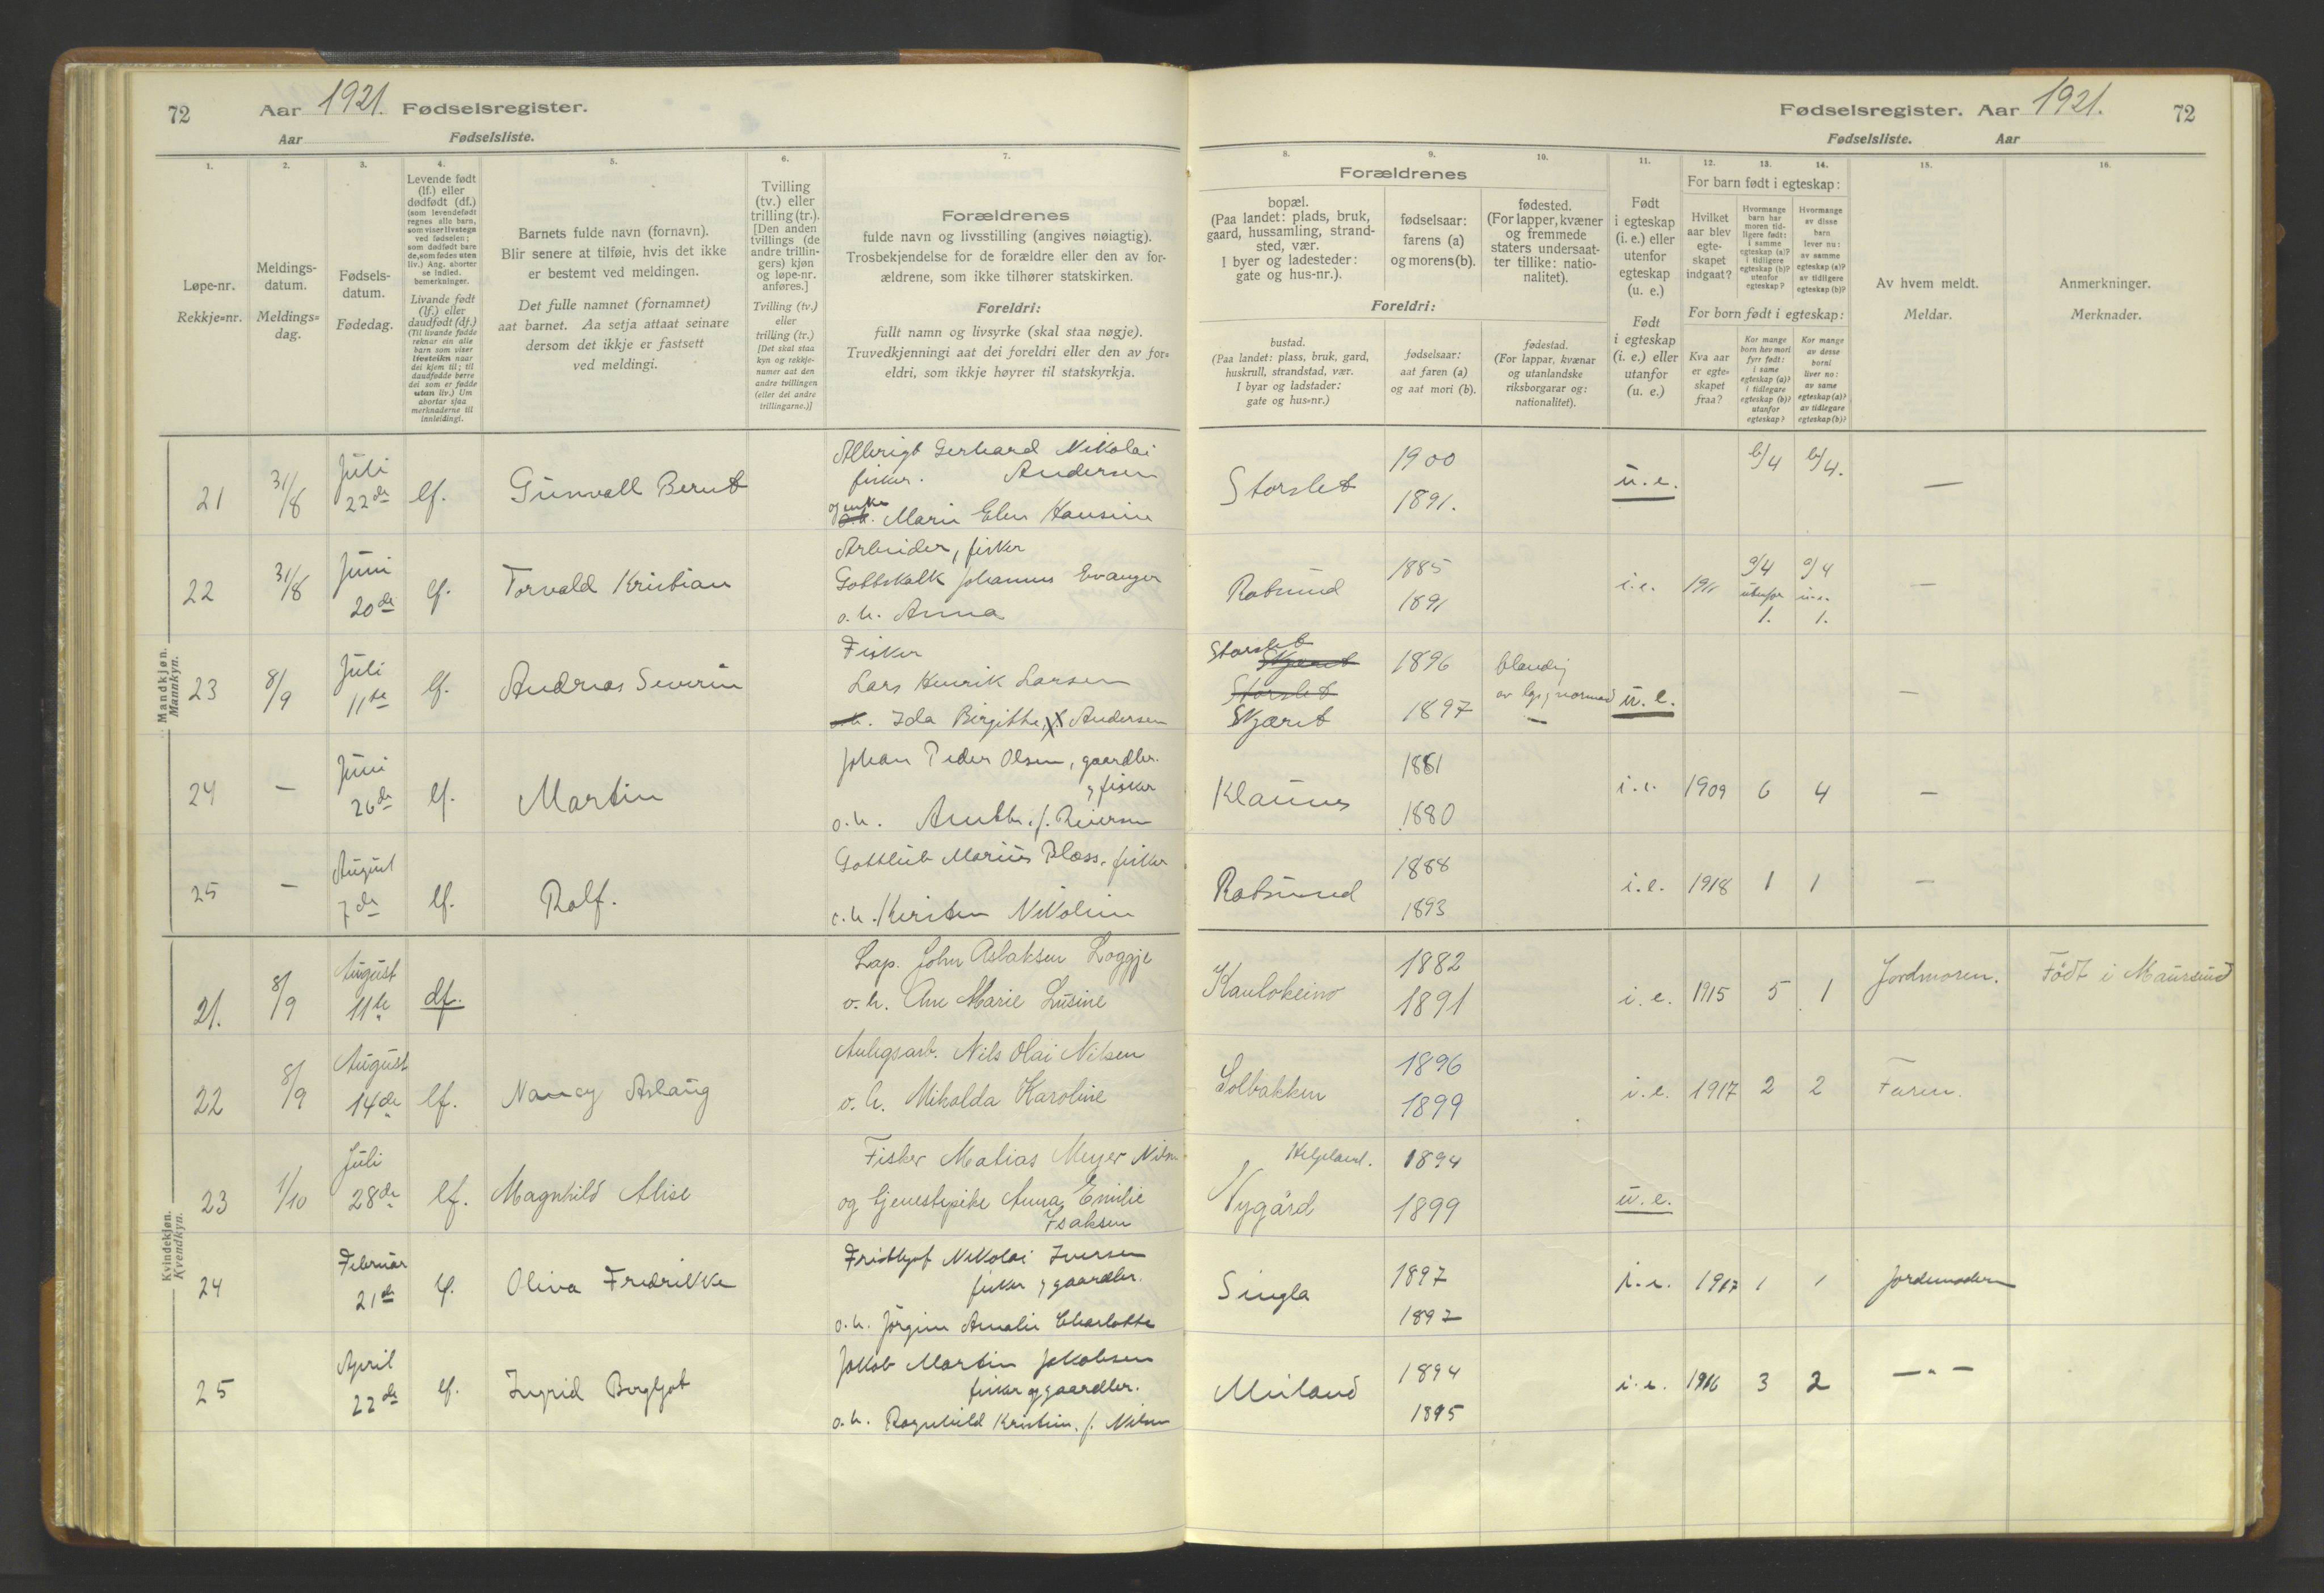 72
Aar 1921. Fødselsregister.
Aar Fødselsliste.
Fødselsregister. Aar 1921.
72
Fødselsliste. Aar
1.
Løpe-nr.
Rekkje-nr.
2.
Meldings-
datum.
Meldings-
dag.
3.
Fødsels-
datum.
Fødedag.
4.
Levende født
(lf.) eller
dødfødt (df.)
(som levendefødt
regnes alle barn,
som viser livstegn
ved fødselen;
som dødfødt bare
de, som fødes uten
liv.) Ang. aborter
se indled.
bemerkninger.
Livande født
(lf.) eller
daudfødt (df.)
(Til livande fødde
reknar ein alle
barn som viser
livsteikn naar
dei kjem til; til
daudfødde berre
dei som er fødde
utan liv.) Um
abortar sjaa
merknaderne til
innleidingi.
5.
Barnets fulde navn (fornavn).
Blir senere at tilføie, hvis det ikke
er bestemt ved meldingen.
Det fulle namnet (fornamnet)
aat barnet. Aa setja attaat seinare
dersom det ikkje er fastsett
ved meldingi.
6.
Tvilling
(tv.) eller
trilling (tr.).
[Den anden
tvillings (de
andre trillin-
gers) kjøn
og løpe-nr.
anføres.]
Tvilling (tv.)
eller
trilling (tr.)
[Det skal staa
kyn og rekkje-
numer aat den
andre tvillingen
(eller dei andre
trillingarne.)]
7.
Forældrenes
fulde navn og livsstilling (angives nøiagtig).
Trosbekjendelse for de forældre eller den av for-
ældrene, som ikke tilhører statskirken.
Foreldri:
fullt namn og livsyrke (skal staa nøgje).
Truvedkjenningi aat dei foreldri eller den av for-
eldri, som ikkje høyrer til statskyrkja.
Forældrenes
8.
bopæl.
(Paa landet: plads, bruk,
gaard, hussamling, strand-
sted, vær.
I byer og ladesteder:
gate og hus-nr.).
9.
fødselsaar:
farens (a)
og morens (b).
10.
fødested.
(For lapper, kvæner
og fremmede
staters undersaat-
ter tillike: natio-
nalitet).
Foreldri:
bustad.
(Paa landet: plass, bruk, gard,
huskrull, strandstad, vær.
I byar og ladstader:
gate og hus-nr.)
fødselsaar:
aat faren (a)
og aat mori (b).
fødestad.
(For lappar, kvænar
og utanlandske
riksborgarar og:
nationalitet).
11.
Født
i egteskap
(i. e.) eller
utenfor
egteskap
(u. e.)
Født
i egteskap
(i. e.) eller
utanfor
(u. e.)
12. 13. 14.
For barn født i egteskap:
Hvilket
aar blev
egte-
skapet
indgaat?
Hvormange
barn har
moren tid-
ligere født:
i samme
egteskap (a)?
i tidligere
egteskap (b)?
utenfor
egteskap?
Hvormange
av disse
barn
lever nu:
av samme
egteskap (a)?
av tidligere
egteskap (b)?
For born født i egteskap:
Kva aar
er egte-
skapet
fraa?
Kor mange
born hev mori
fyrr født:
i same
egteskap (a)?
i tidlegare
egteskap (b)?
utanfor
egteskap?
Kor mange
av desse
borni
liver no:
av same
egteskap (a)?
av tidlegare
egteskap (b)?
15.
Av hvem meldt.
Meldar.
16.
Anmerkninger.
Merknader.
Mandkjøn.
Mannkyn.
21 31/8 Juli 22de lf. Gunvall Bernt
Albrigt Gerhard Nikolai
fisker. Andersen
og enke Marie Elen Hansine
Storslet 1900 1891. u.e. b/4 b/4. —
22 31/8 Juni 20de lf. Torvald Kristian
Arbeider, fisker
Gottskalk Johannes Evanger
o.h. Anna
Rotsund 1885 1891 i.e. 1911 a/4 utenfor 1. a/4 u.e. 1. —
23 8/9 Juli 11te lf. Andreas Severin
Fisker
Lars Henrik Larsen
o.h. Ida Birgitte, Andersen
Storslet Skjæret Storslet Skjæret 1896 1897 blandig av lap og normand — u.e. —
24 — Juni 26de lf. Martin
Johan Peder Olsen, gaardbr.
og fisker
o.h. Anethe. f. Reiersen
Klaunes 1881 1880 i.e. 1909 6 4 —
25 — August 7de lf. Rolf.
Gottlieb Marius Bless, fisker
o.h. Kirsten Nikoline
Rotsund 1888 1893 i.e. 1918 1 1 —
Kvindekjøn.
Kvendkyn.
21. 8/9 August 11te df.
Lap. John Aslaksen Loggje
o.h. Ane Marie Lusine
Kautokeino 1882 1891 i.e. 1915 5 1 Jordmoren. Født i Maursund
22 8/9 August 14de lf. Nancy Aslaug
Anlegsarb. Nils Olai Nilsen
o.h. Mikalda Karoline
Solbakken 1896 1899 i.e. 1917 2 2 Faren.
23 1/10 Juli 28de lf. Magnhild Alise
Fisker Matias Meyer Nilsen
og tjenestepike Anna Emilie
Isaksen
Helgeland. Nygård 1894 1899 u.e.
24 Februar 21de lf. Oliva Fredrikke
Fridtjof Nikolai Iversen
fisker og gaardbr.
o.h. Jørgine Amalie Charlotte
Singla 1897 1897 i.e. 1917 1 1 Jordemoderen
25 April 22de lf. Ingrid Bergljot
Jakob Martin Jakobsen
fisker og gaardbr.
o.h. Ragnhild Kristine. f. Nilsen
Meiland 1894 1895 i.e. 1916 3 2 — " —